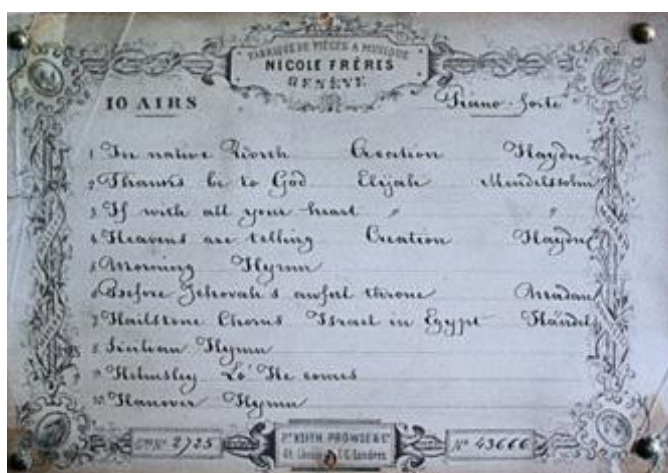 FABRIQUE DE PIÈCES A MUSIQUE
NICOLE FRÈRES
GENÈVE
10 AIRS Piano-forte
1 In native Worth Creation Haydn
2 Thanks be to God Elijah Mendelssohn
3 If with all your heart " "
4 Heavens are telling Creation Haydn
5 Morning Hymn
6 Before Jehovah's awful throne Madan
7 Hailstone Chorus Israel in Egypt Händel
8 Sicilian Hymn
9 Helmsley Lo' He comes
10 Hanover Hymn
Gme No 2725
KEITH PROWSE & Co
48 E.C. Londres
No 43666